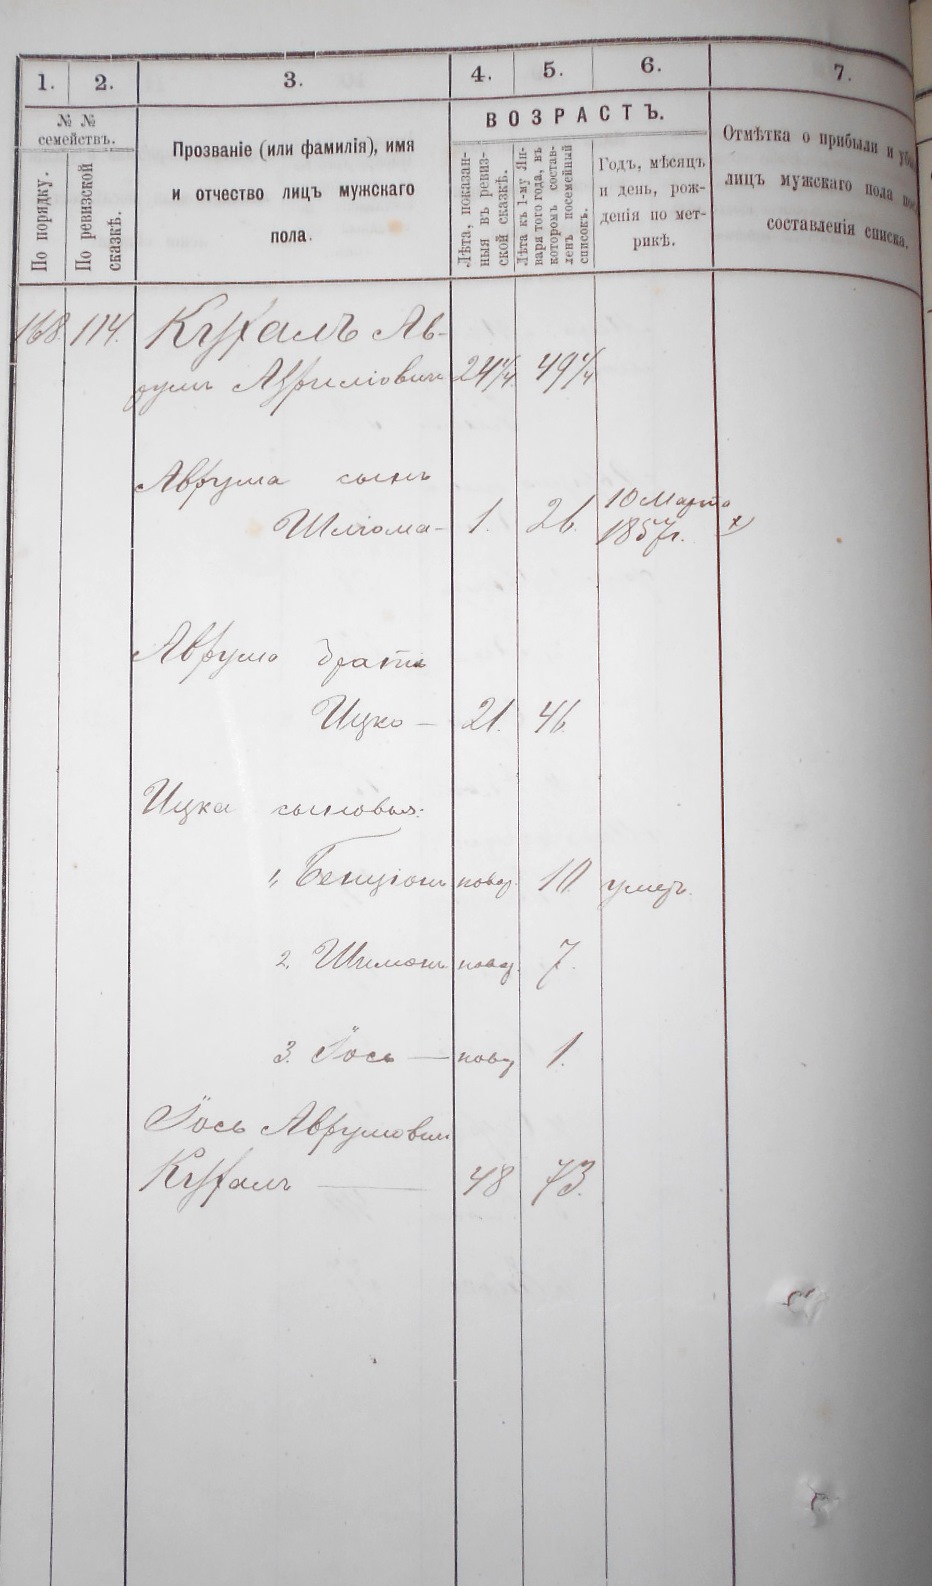 1. 2. 3. 4. 5. 6. 7.
№ №
семействъ.
По порядку.
По ревизской
сказкѣ.
Прозваніе (или фамилія), имя
и отчество лицъ мужскаго
пола.
ВОЗРАСТЪ.
Лѣта, показан-
ныя въ ревиз-
ской сказкѣ.
Лѣта къ 1-му Ян-
варя того года, въ
которомъ состав-
ленъ посемейный
списокъ.
Годъ, мѣсяцъ
и день, рож-
денія по мет-
рикѣ.
Отмѣтка о прибыли и
лицъ мужскаго пола
составленія списка.
168. 114. Ав-
румъ 24 1/4 49 1/4
Аврума сынъ
Шліома - 1. 26. 10 Марта
1857 г. х)
Аврума братъ
Ицко - 21. 46.
Ицка сыновья:
1, Бенціонъ новор. 10. умеръ.
2. Шимонъ новор. 7.
3. Іось — новор 1.
Іось Аврумовичъ
— 48 73.